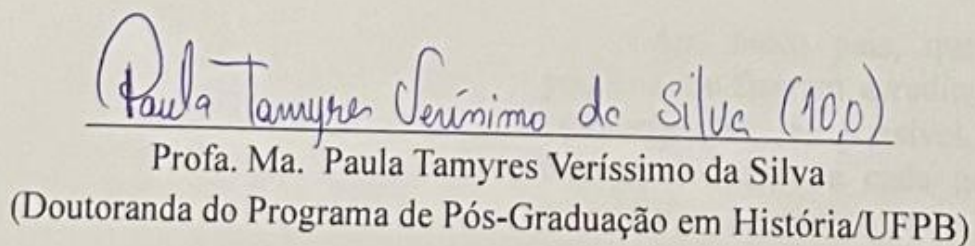 Paula Tamyres Veríssimo da Silva (10,0)
Profa. Ma. Paula Tamyres Veríssimo da Silva
(Doutoranda do Programa de Pós-Graduação em História/UFPB)